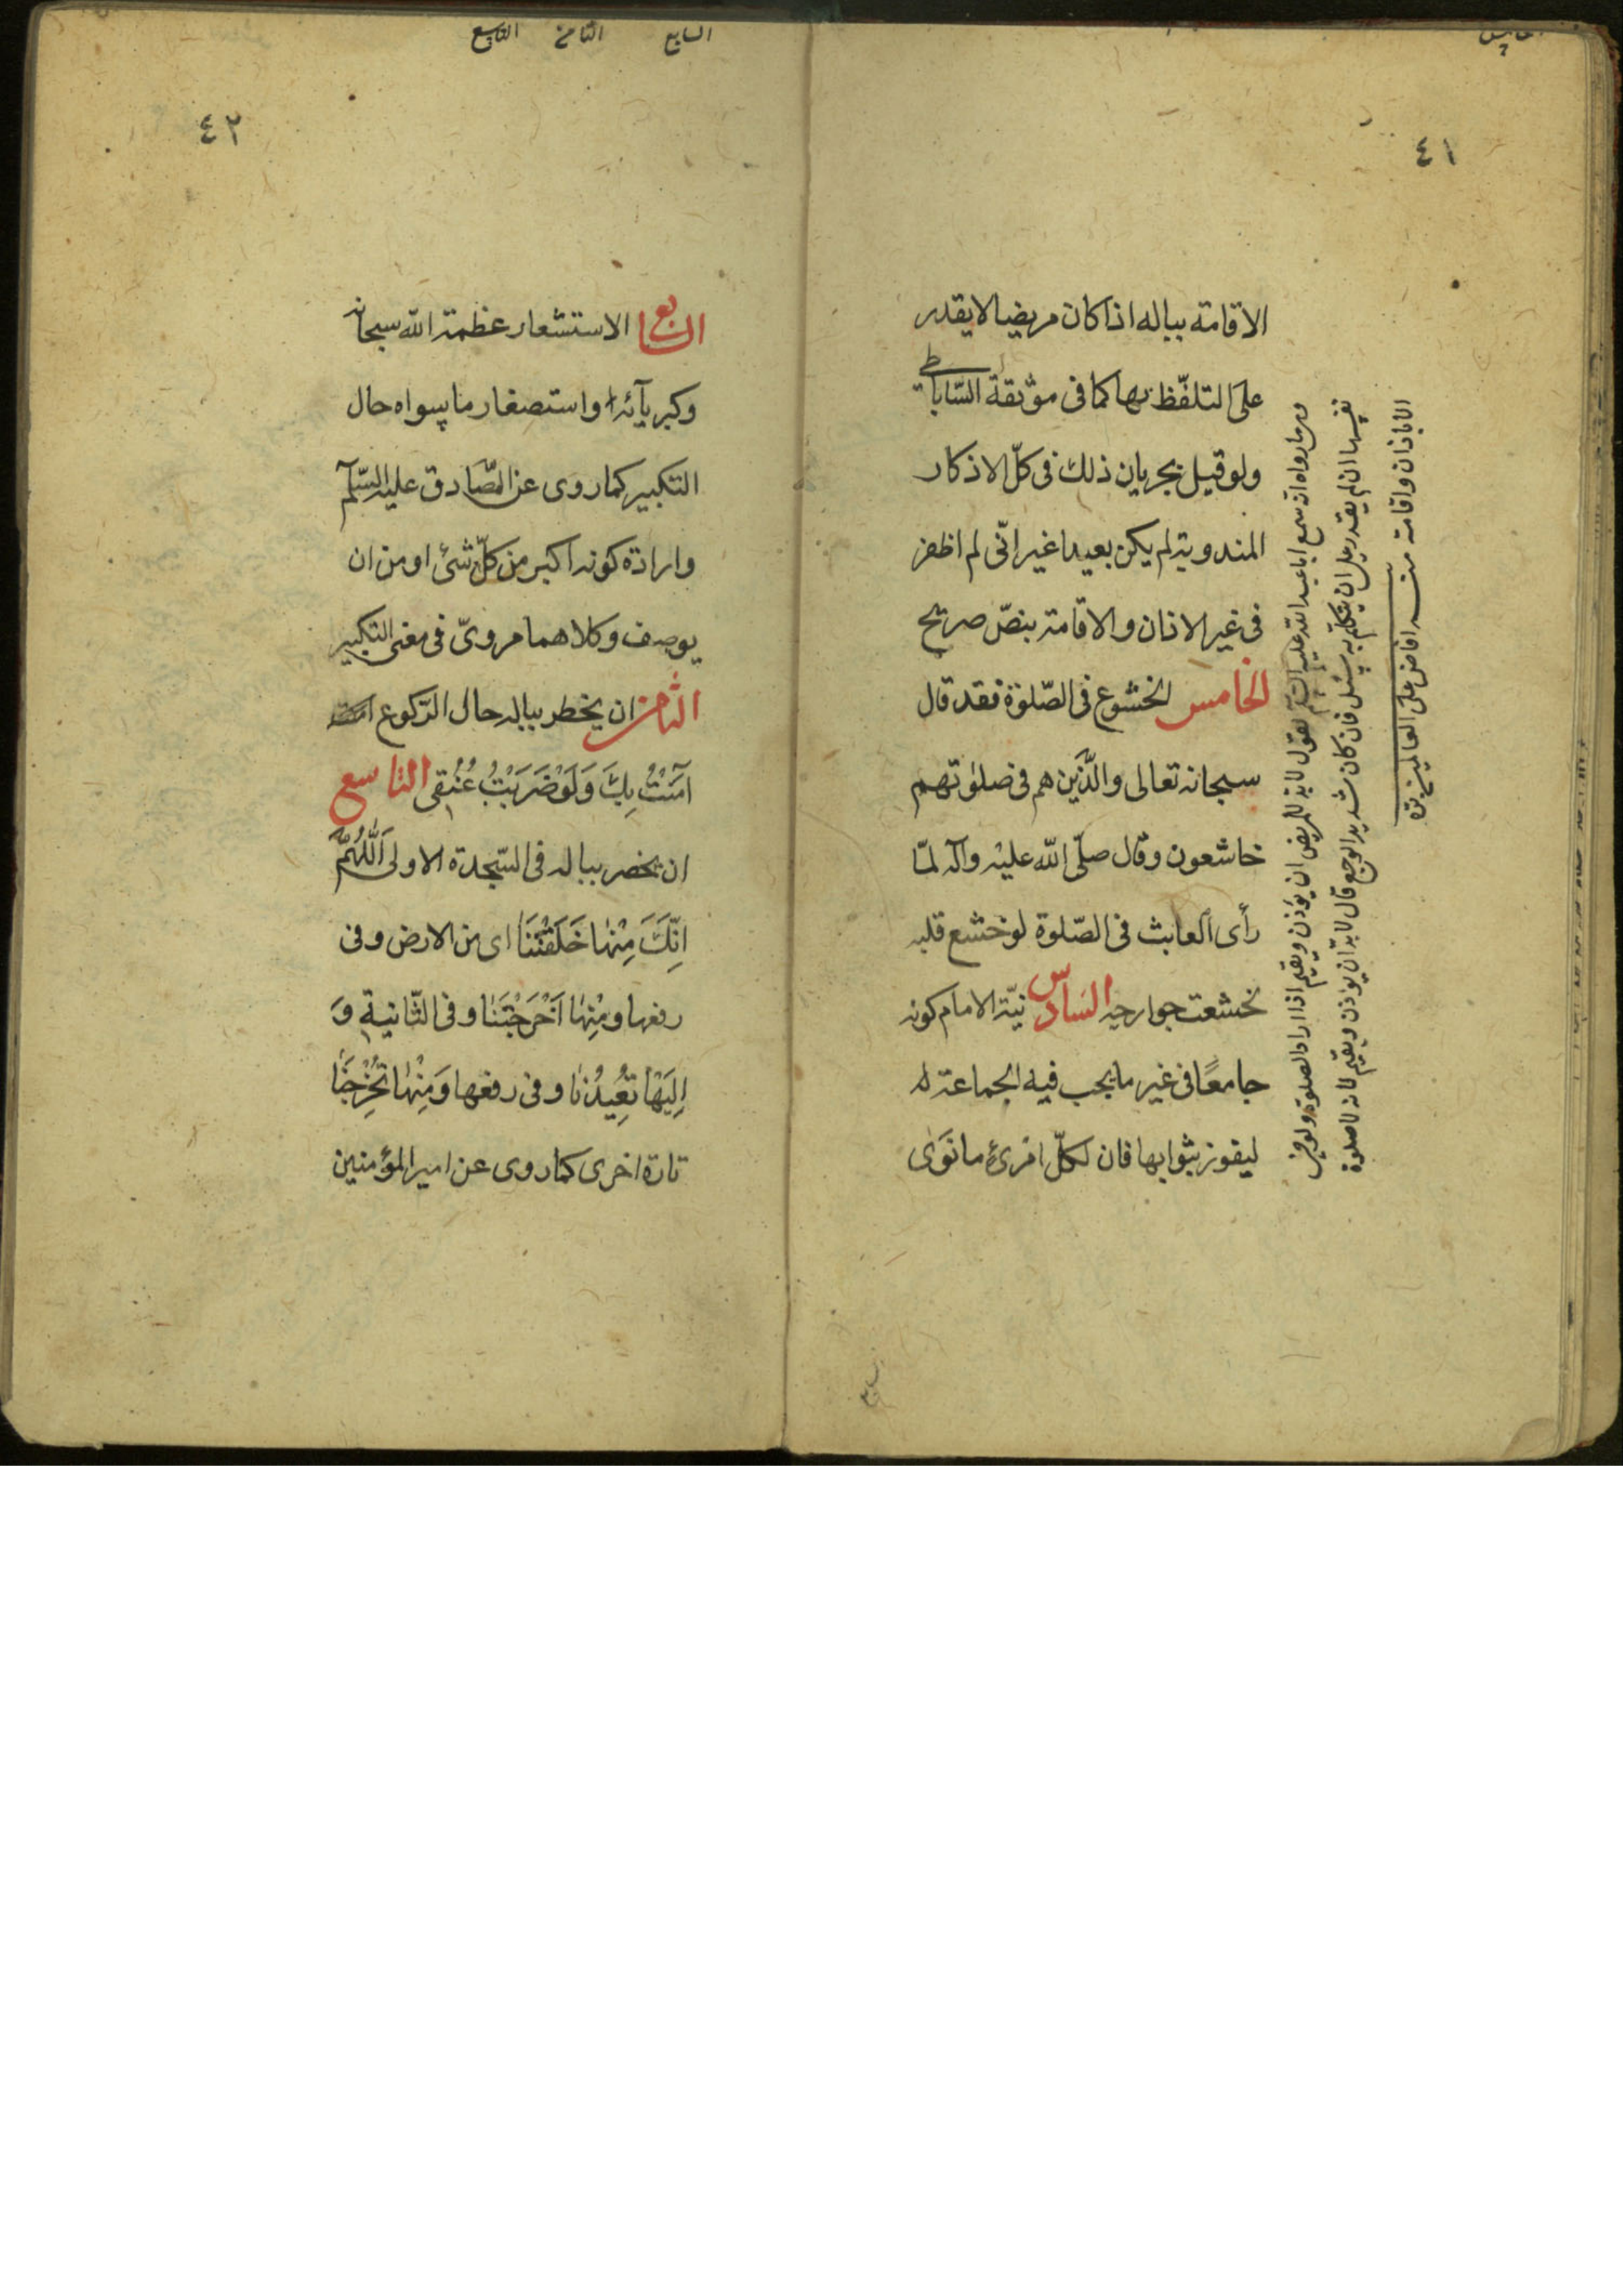 ٤١
الاقامة بباله اذا كان مريضا لا يقدر
على التلفّظ بها كما فى موثقة السّاباطى
ولو قيل بجريان ذلك فى كلّ الاذكار
المندوبة لم يكن بعيدا غير انّى لم اظفر
فى غير الاذان والاقامة بنصّ صريح
الخامس الخشوع فى الصّلوة فقد قال
سبحانه تعالى والّذين هم فى صلوتهم
خاشعون وقال صلّى الله عليه وآله لمّا
رأى العابث فى الصّلوة لو خشع قلبه
لخشعت جوارحه السادس نيّة الامام كونه
جامعًا فى غير ما يجب فيه الجماعة له
ليفوز بثوابها فان لكلّ امرئ ما نوى
وهى ما رواه انه سمع ابا عبد الله عليه السلام يقول لا بد للمريض ان يؤذن ويقيم اذا اراد الصلوة ولو فى
نفسه ان لم يقدر على ان يتكلم به سئل فان كان شديد الوجع قال لا بد ان يؤذن ويقيم لانه لا صلوة
الا باذان واقامة منه افاض على العالمين بره
السابع
السابع الثامن التاسع
٤٢
السابع الاستشعار عظمة الله سبحانه
وكبريآئه واستصغار ما سواه حال
التكبير كما روى عن الصّادق عليه السّلم
وارادة كونه اكبر من كلّ شئ او من ان
يوصف وكلاهما مروىّ فى معنى التكبير
الثامن ان يخطر بباله حال الرّكوع
آمَنْتُ بِكَ وَلَوْ ضَرَبْتَ عُنُقِى التاسع
ان يخضر بباله فى السّجدة الاولى اَللّهُمَّ
اِنَّكَ مِنْهٰا خَلَقْتَنٰا اى من الارض وفى
رفعها ومِنْهٰا اَخْرَجْتَنٰا وفى الثّانية وَ
اِلَيْهٰا تُعِيدُنٰا وفى رفعها وَمِنْهٰا تُخْرِجُنٰا
تارة اخرى كما روى عن امير المؤمنين